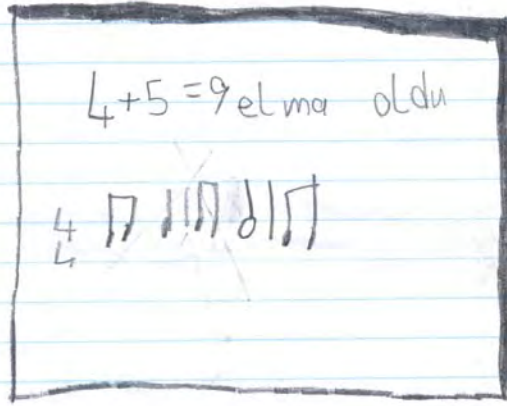 4+5=9 elma oldu
4
4